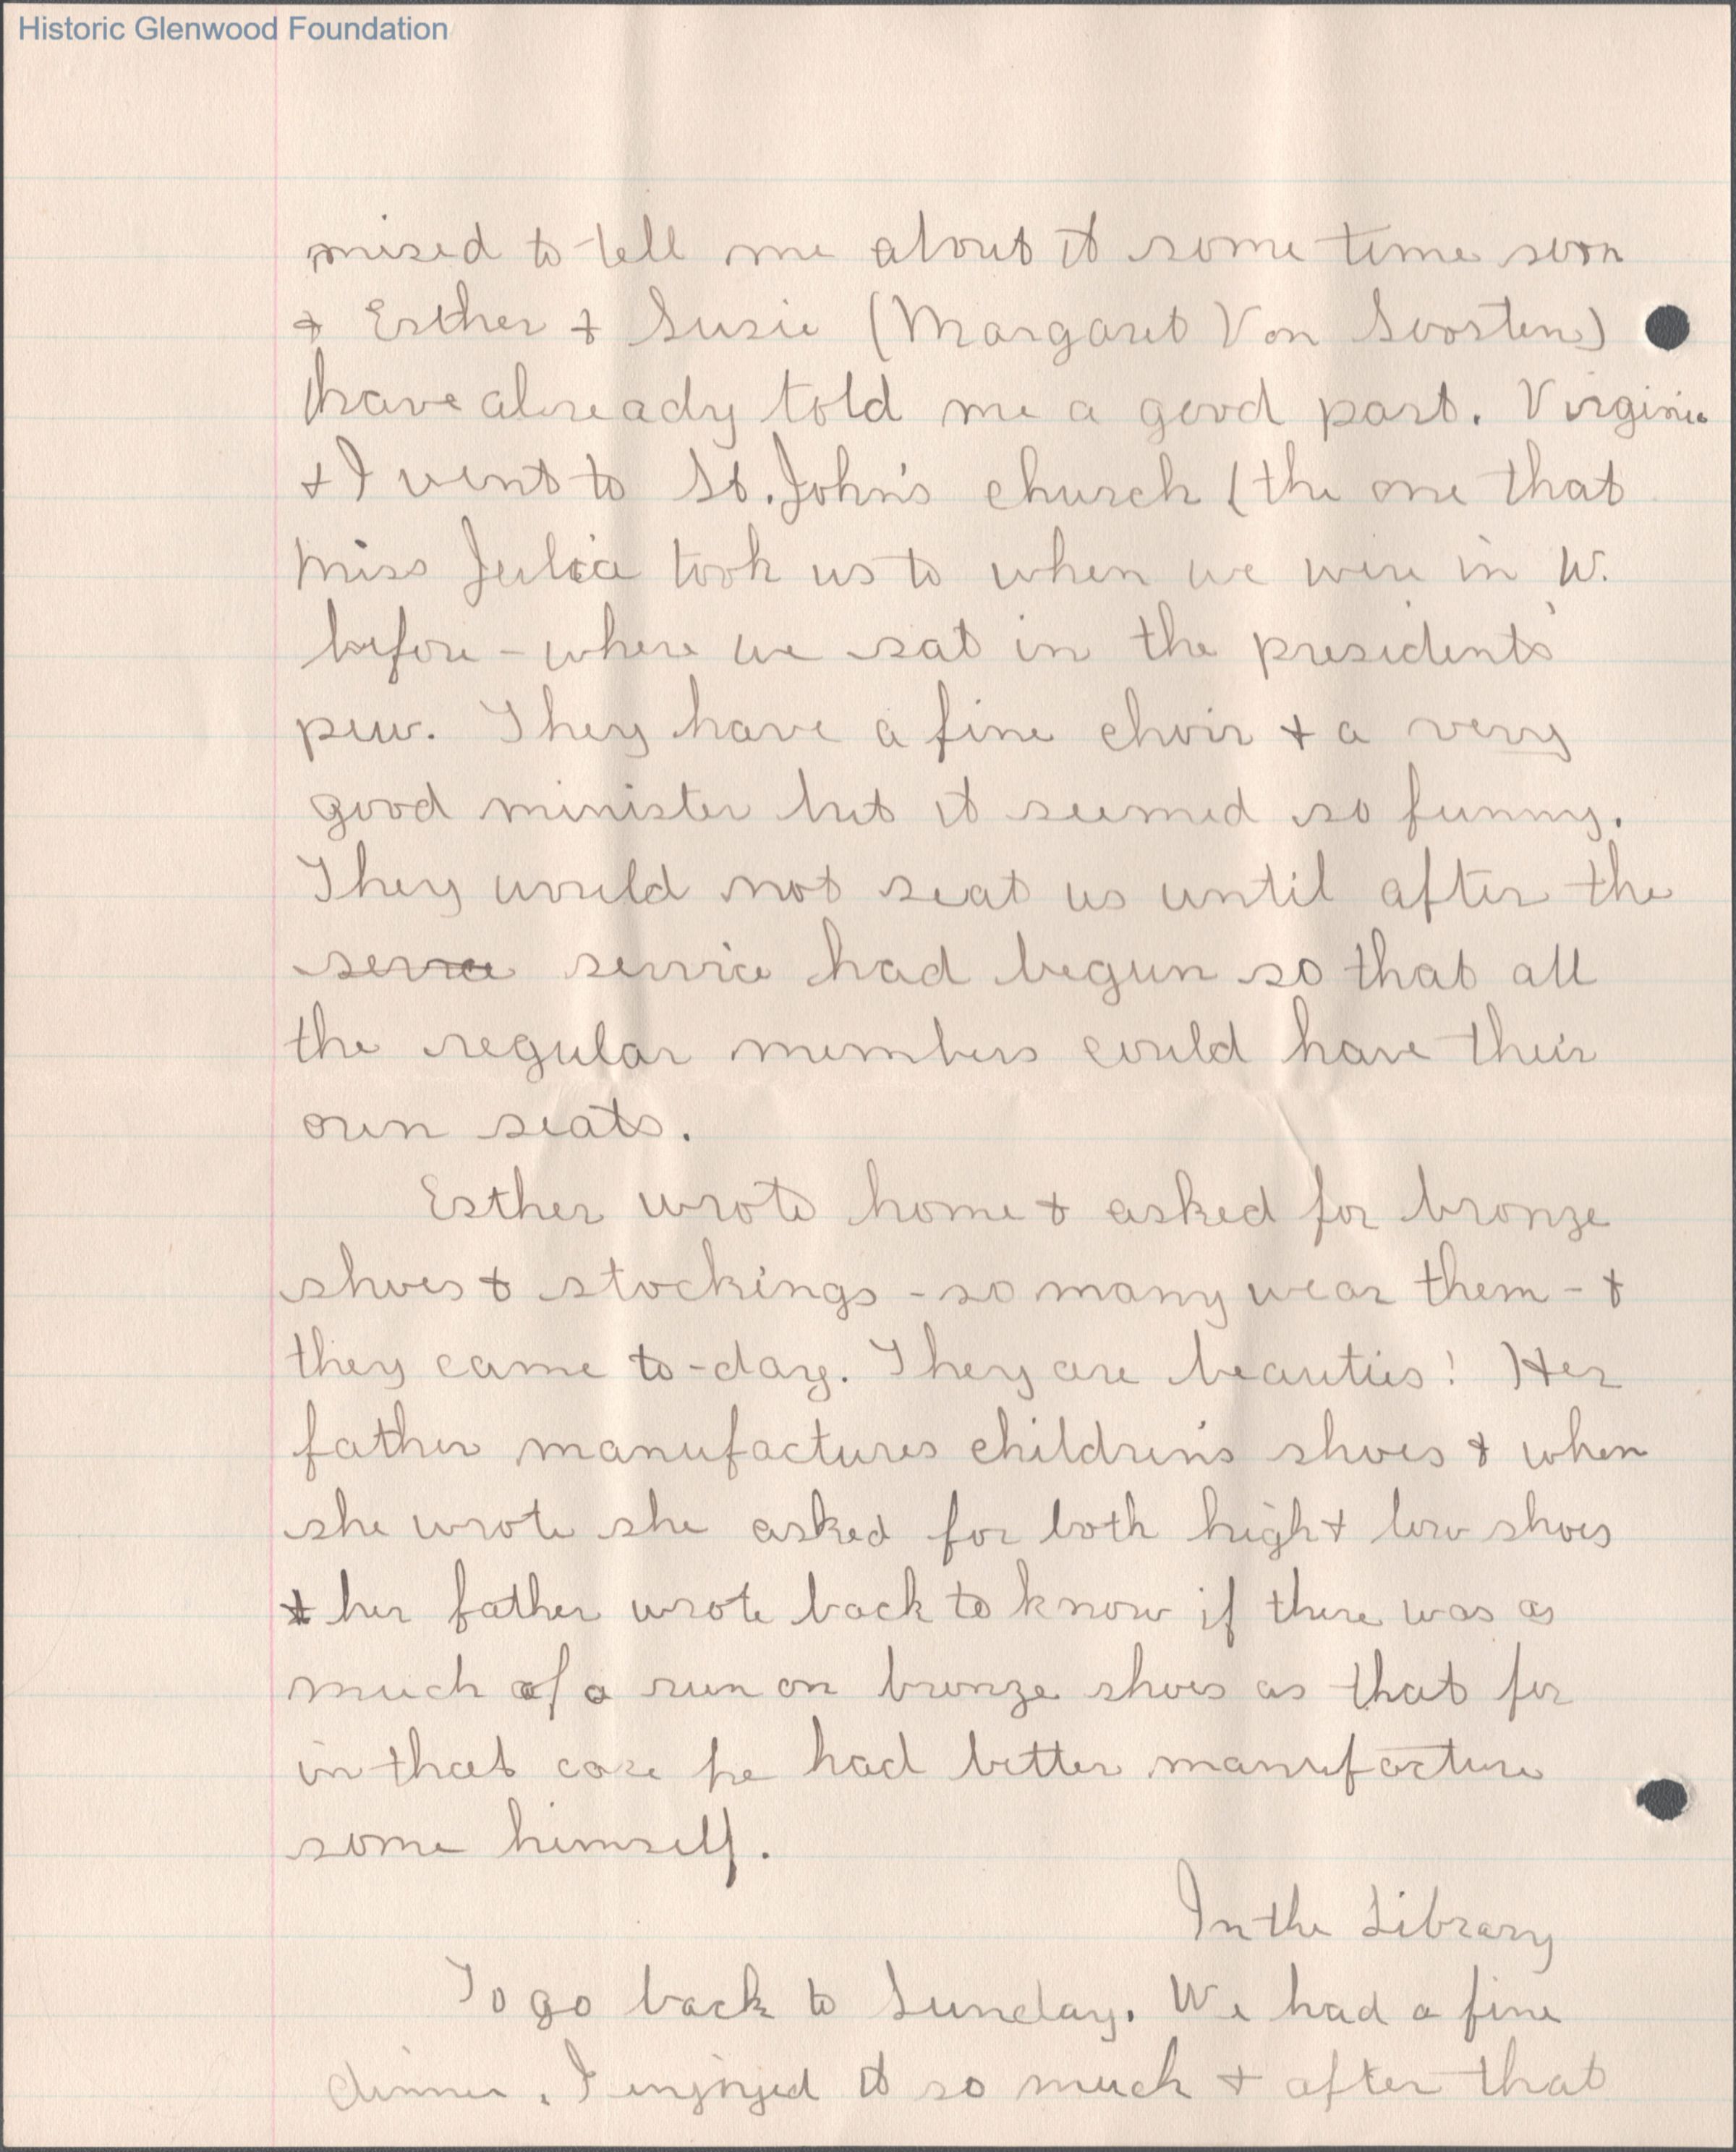 Historic Glenwood Foundation
mised to tell me about it some time soon
+ Esther + Susie (Margaret Von Soosten)
have already told me a good part. Virginia
+ I went to St. John's church (the one that
Miss Julia took us to when we were in W.
before - where we sat in the president's
pew. They have a fine choir + a very
good minister but it seemed so funny.
They would not seat us until after the
service had begun so that all
the regular members could have their
own seats.
Esther wrote home + asked for bronze
shoes + stockings - so many wear them - +
they came to-day. They are beauties! Her
father manufactures children's shoes + when
she wrote she asked for both high + low shoes
+ her father wrote back to know if there was as
much of a run on bronze shoes as that for
in that case he had better manufacture
some himself.
In the Library
To go back to Sunday. We had a fine
dinner. I enjoyed it so much + after that